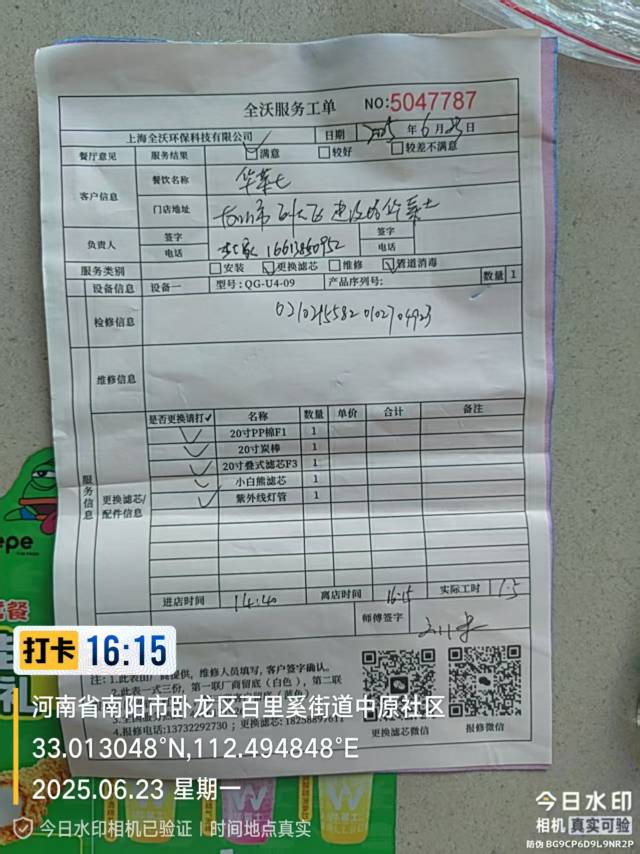 全沃服务工单 NO:5047787
上海全沃环保科技有限公司 日期 2025年6月23日
餐厅意见 服务结果 ☑满意 □较好 □较差不满意
客户信息 餐饮名称 华莱士
门店地址
负责人 签字 签字
电话 16613860952 电话
服务类别 □安装 ☑更换滤芯 □维修 ☑管道消毒
设备信息 设备一 型号:QG-U4-09 产品序列号: 数量 1
检修信息 02102155820102704923
维修信息
服务信息 更换滤芯/配件信息
是否更换请打✓ 名称 数量 单价 合计 备注
✓ 20寸PP棉F1 1
✓ 20寸炭棒 1
✓ 20寸叠式滤芯F3 1
✓ 小白熊滤芯 1
✓ 紫外线灯管 1
进店时间 14:40 离店时间 16:15 实际工时 1.5
师傅签字
注:1.此表由厂商提供,维修人员填写,客户签字确认。
2.此表一式三份,第一联厂商留底(白色),第二联
4.报修电话:13732292730;更换滤芯:18258897611
更换滤芯微信 报修微信
epe
套餐
礼
打卡 16:15
河南省南阳市卧龙区百里奚街道中原社区
33.013048°N,112.494848°E
2025.06.23 星期一
今日水印相机已验证 时间地点真实
今日水印
相机 真实可验
防伪 BG9CP6D9L9NR2P